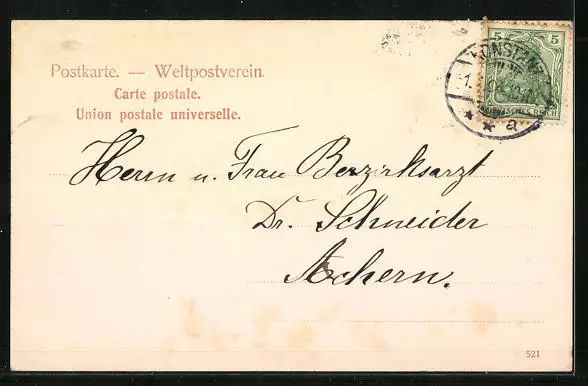 5 5
KONSTANZ
DEUTSCHES REICH
* * a
Postkarte. — Weltpostverein.
Carte postale.
Union postale universelle.
Herrn u. Frau Bezirksarzt
Dr. Schneider
Achern.
521